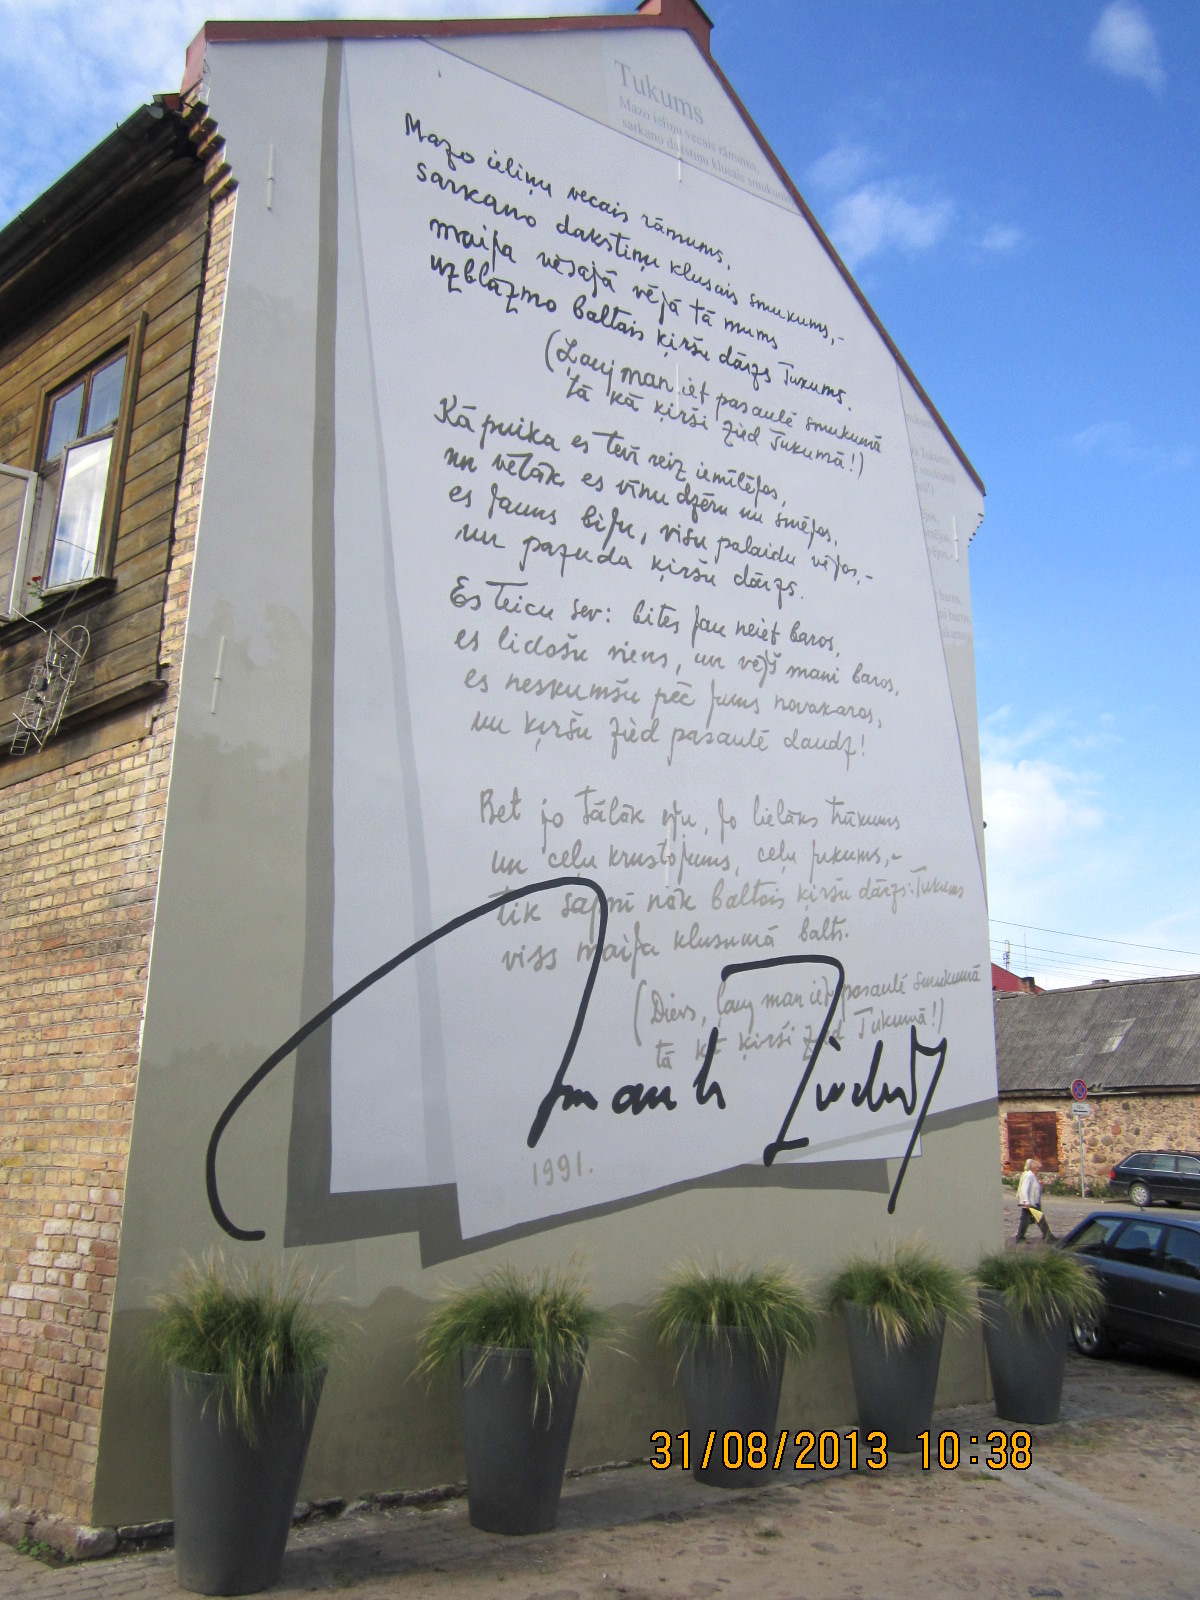 Tukums
Mazo ieliņu vecais rāmums,
sarkano dakstiņu klusais smukums
Mazo ieliņu vecais rāmums,
sarkano dakstiņu klusais smukums,-
maiga vēsajā vējā tā mums
uzblāzmo baltais ķiršu dārzs Tukums.
(Ļauj man iet pasaulē smukumā
tā kā ķirši zied Tukumā!)
Kā puika es tevī reiz iemīlējos,
un vēlāk es vīnu dzēru un smējos,
es jauns biju, visu palaidu vējos,-
un pazuda ķiršu dārzs.
Es teicu sev: bites jau neiet baros,
es lidošu viens, un vējš mani baros,
es neskumšu pēc jums novakaros,
un ķiršu zied pasaulē daudz!
Bet jo tālāk eju, jo lielāks trūkums
un ceļu krustojums, ceļu jukums,-
tik sapnī nāk baltais ķiršu dārzs: Tukums
viss maiga klusumā balts.
(Dievs, ļauj man iet pasaulē smukumā
tā kā ķirši zied Tukumā!)
Imants Ziedonis
1991.
31/08/2013 10:38